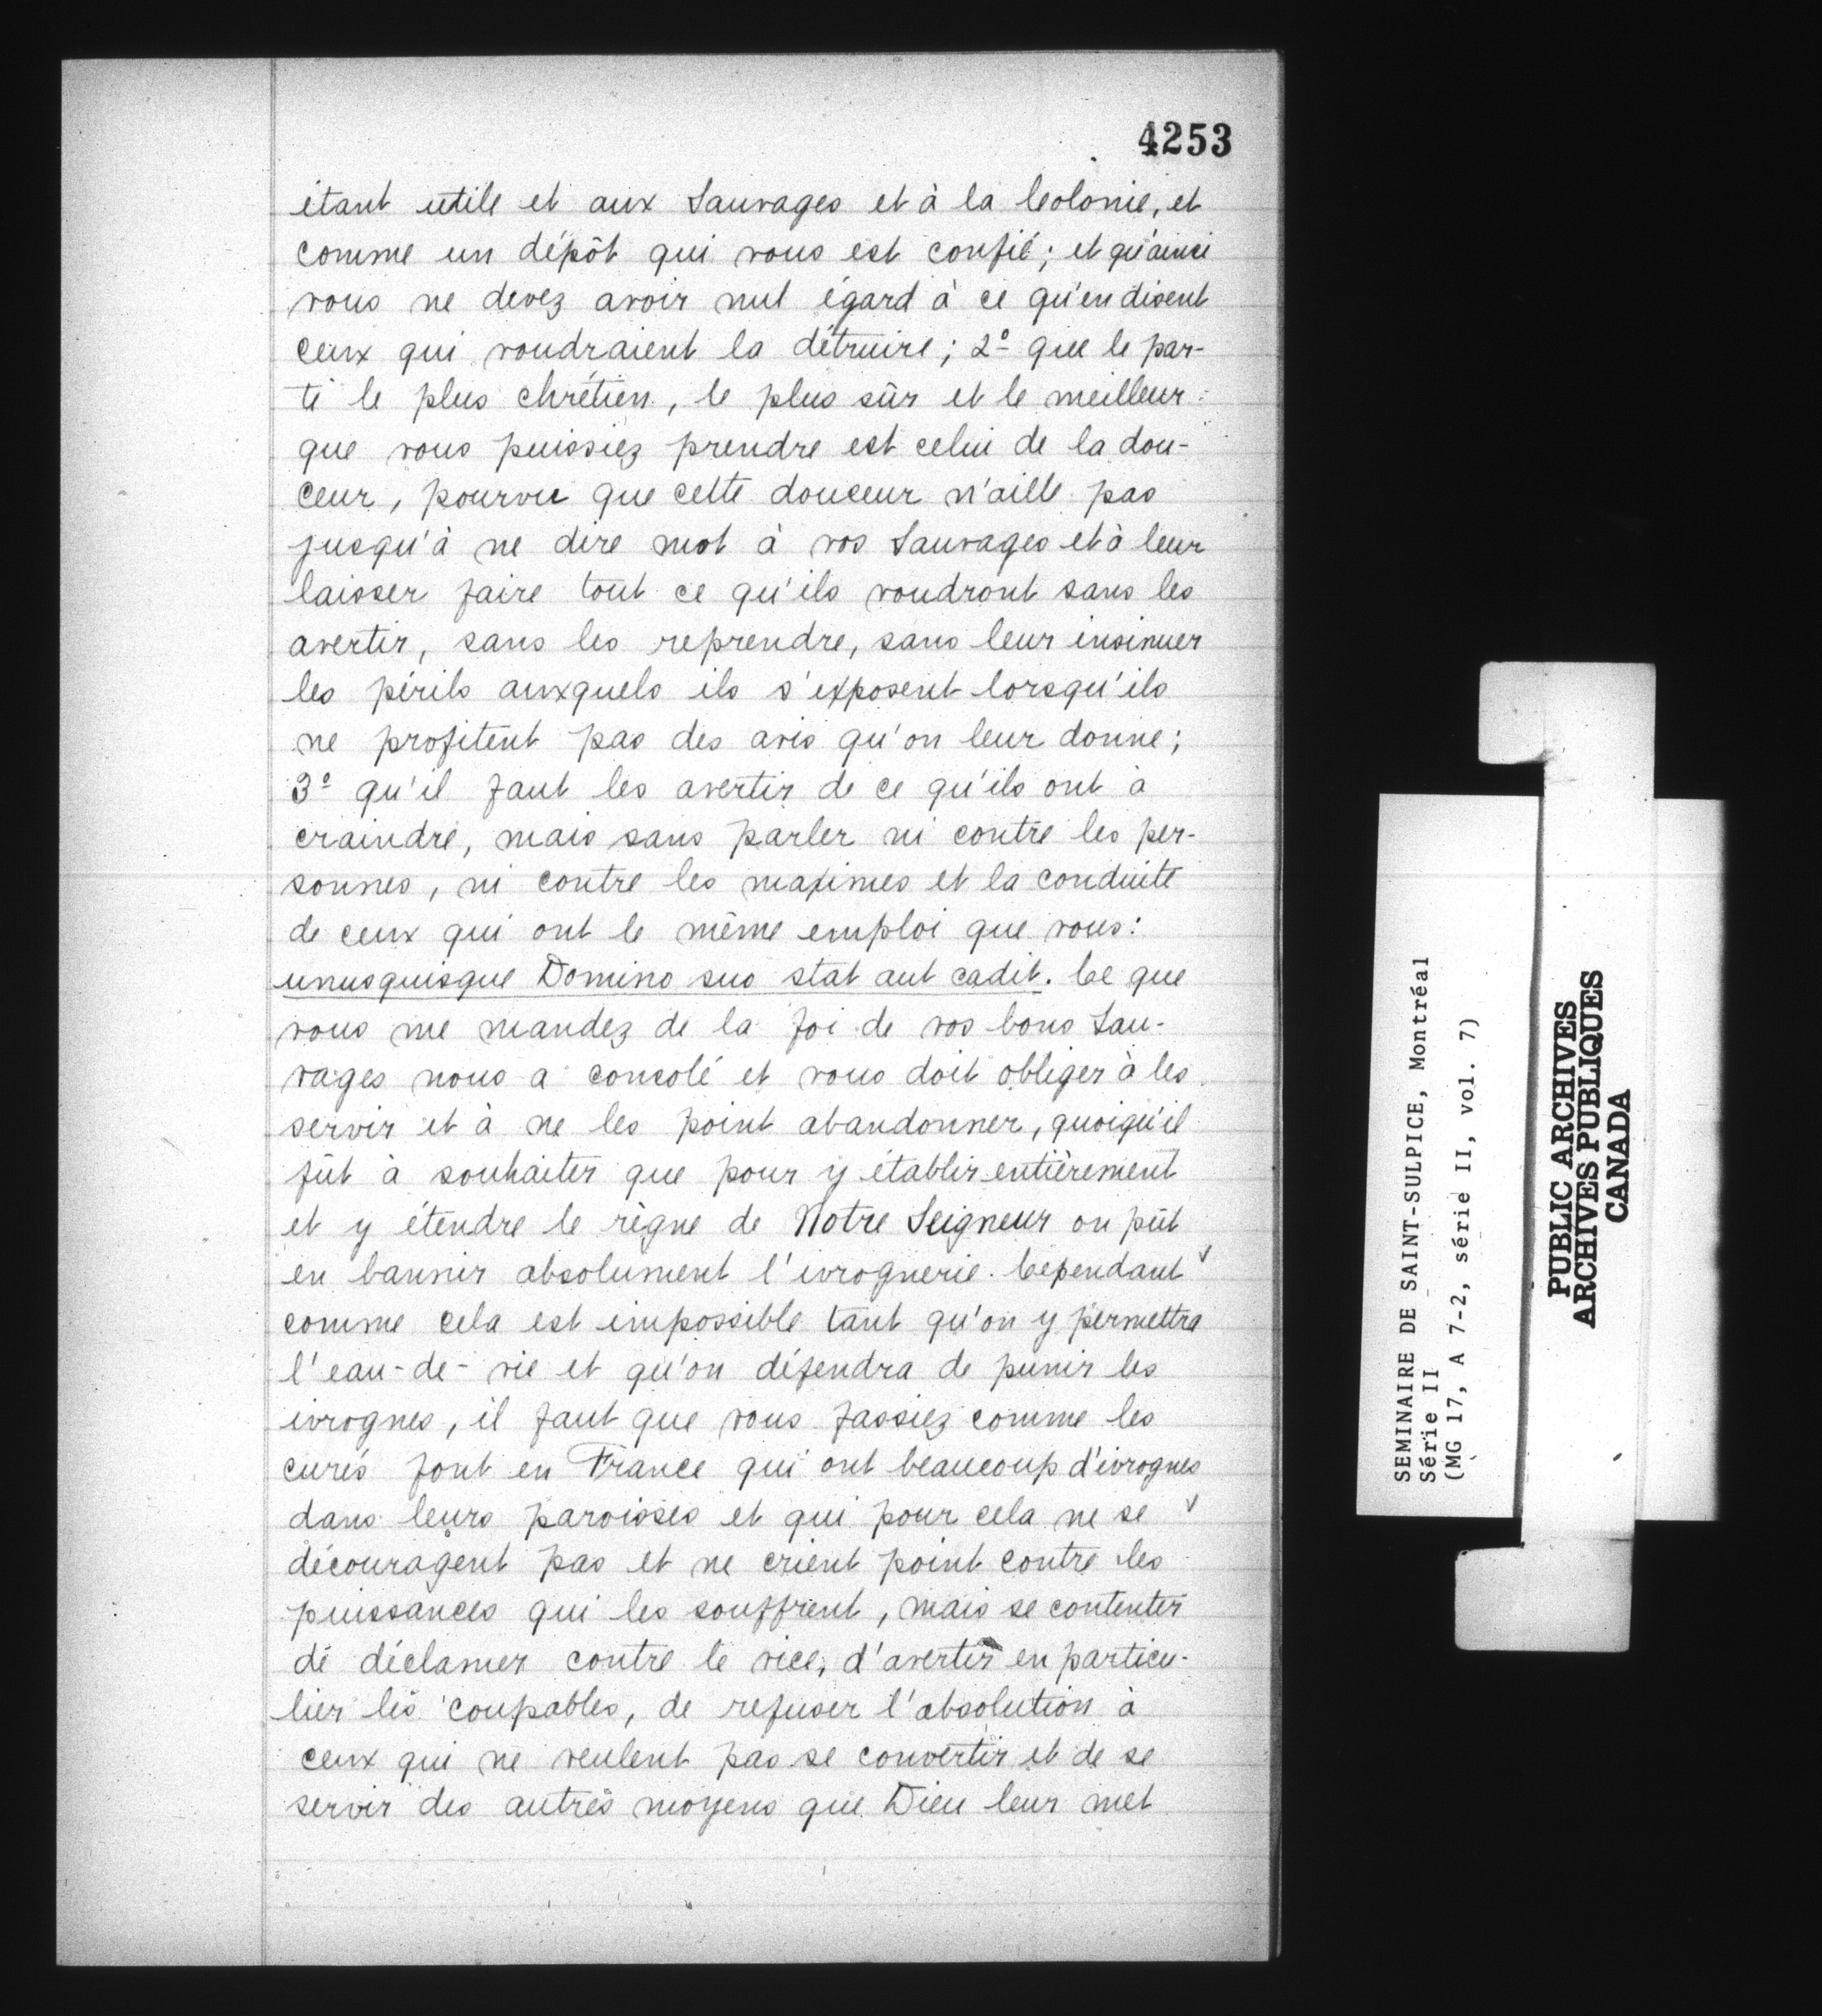 4253
étant utile et aux Sauvages et à la Colonie, et
comme un dépôt qui vous est confié; et qu'ainsi
vous ne devez avoir nul égard à ce qu'en disent
ceux qui voudraient la détruire; 2º que le par-
ti le plus chrétien, le plus sûr et le meilleur
que vous puissiez prendre est celui de la dou-
ceur, pourvu que cette douceur n'aille pas
jusqu'à ne dire mot à vos Sauvages et à leur
laisser faire tout ce qu'ils voudront sans les
avertir, sans les reprendre, sans leur insinuer
les périls auxquels ils s'exposent lorsqu'ils
ne profitent pas des avis qu'on leur donne;
3º qu'il faut les avertir de ce qu'ils ont à
craindre, mais sans parler ni contre les per-
sonnes, ni contre les maximes et la conduite
de ceux qui ont le même emploi que vous:
unusquisque Domino suo stat aut cadit. Ce que
vous me mandez de la foi de vos bons Sau-
vages nous a consolé et vous doit obliger à les
servir et à ne les point abandonner, quoiqu'il
fût à souhaiter que pour y établir entièrement
et y étendre le règne de Notre Seigneur on pût
en bannir absolument l'ivrognerie. Cependant
comme cela est impossible tant qu'on y permettra
l'eau-de-vie et qu'on défendra de punir les
ivrognes, il faut que vous fassiez comme les
curés font en France qui ont beaucoup d'ivrognes
dans leurs paroisses et qui pour cela ne se
découragent pas et ne crient point contre les
puissances qui les souffrent, mais se contenter
de déclamer contre le vice, d'avertir en particu-
lier les coupables, de refuser l'absolution à
ceux qui ne veulent pas se convertir et de se
servir des autres moyens que Dieu leur met
SEMINAIRE DE SAINT-SULPICE, Montréal
Série II
(MG 17, A 7-2, série II, vol. 7)
PUBLIC ARCHIVES
ARCHIVES PUBLIQUES
CANADA